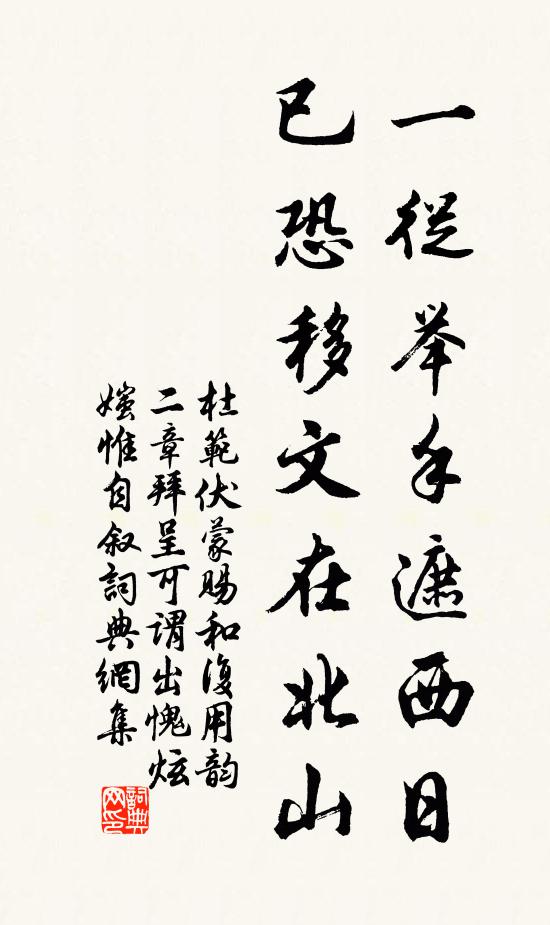 一從举手遮西日
已恐移文在北山
杜範伏蒙賜和復用韵
二章拜呈可谓出愧炫
媸惟自叙詞典網集
詞典网印